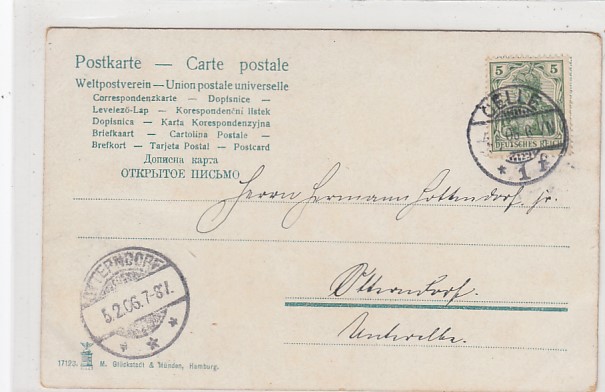 Postkarte — Carte postale
Weltpostverein — Union postale universelle
Correspondenzkarte — Dopisnice —
Levelező-Lap — Korespondenční lístek
Dopisnica — Karta Korespondenzyjna
Briefkaart — Cartolina Postale —
Brefkort — Tarjeta Postal — Postcard
Дописна карта
ОТКРЫТОЕ ПИСЬМО
5 5
DEUTSCHES REICH
CELLE
* 1 f
Herrn Hermann Hottendorf. jr.
Otterndorf.
Unterelbe.
OTTERNDORF
5.2.06.7-8V.
* * *
17123. M. Glückstadt & Münden, Hamburg.